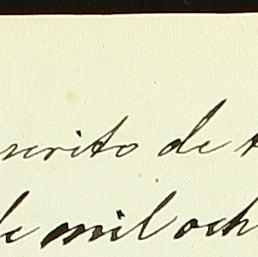 scrito de
de mil och